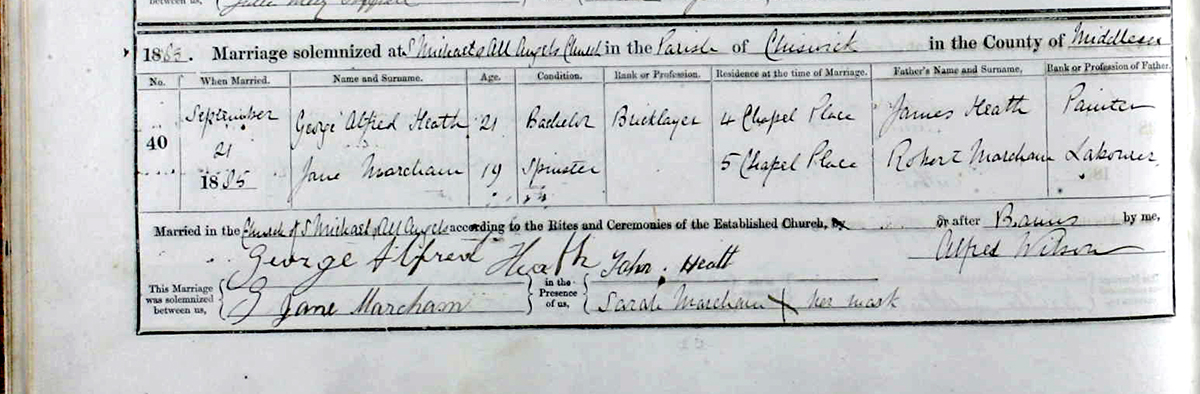 1885. Marriage solemnized at S Michael & All Angels Church in the Parish of Chiswick in the County of Middlesex
No. When Married. Name and Surname. Age. Condition. Rank or Profession. Residence at the time of Marriage. Father's Name and Surname. Rank or Profession of Father.
40 September 21 1885 George Alfred Heath 21 Bachelor Bricklayer 4 Chapel Place James Heath Painter
Jane Marcham 19 Spinster 5 Chapel Place Robert Marcham Labourer
Married in the Church of S Michael & All Angels according to the Rites and Ceremonies of the Established Church, by or after Banns by me,
Alfred Wilson
This Marriage was solemnized between us, George Alfred Heath in the Presence of us, John Heath
Jane Marcham Sarah Marcham X her mark